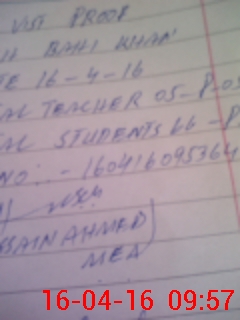 VIST PROOF
H BAHI KHAN
TE 16-4-16
TAL TEACHER 05-P-05
TAL STUDENTS 66-P
NO:-160416095364
SSAIN AHMED
MEA
16-04-16 09:57